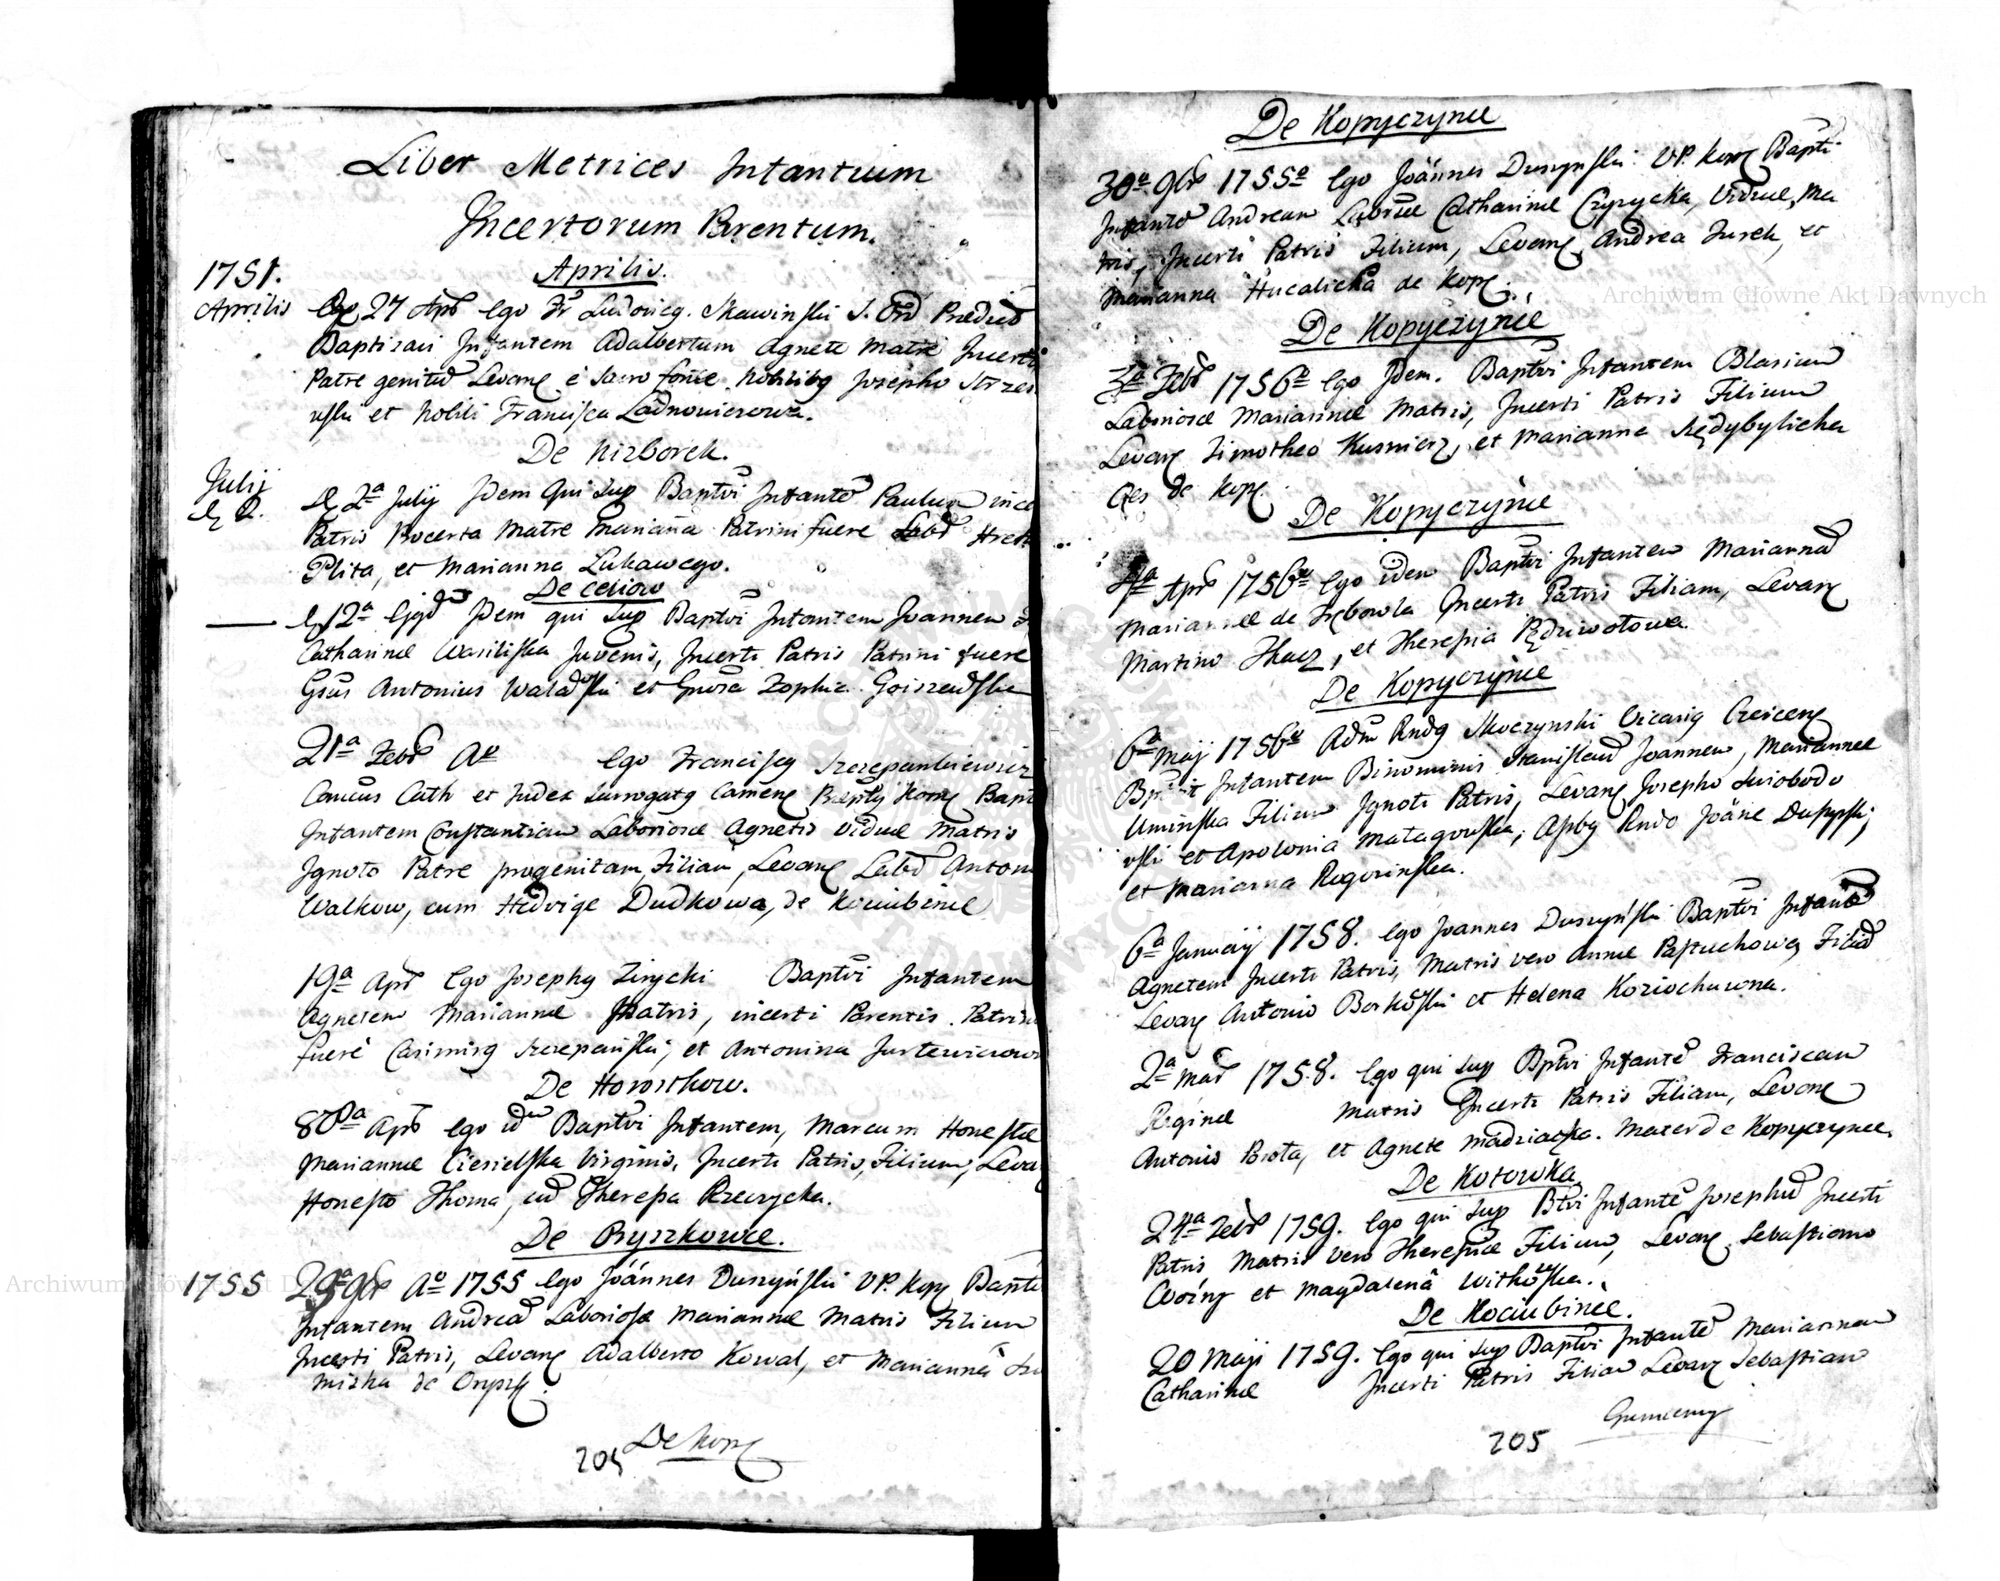 Liber Metrices Infantium
Incertorum Parentum.
1751.
Aprilis.
Aprilis
27 Apr Ego Fr Ludovicg. Skawinski S. Ord Predict
Baptisavi Infantem Adalbertum Agnete Matre Incerto
Patre genitu Levang è sacro fonte Nobilibg Josepho Strzes
uski et Nobili Francisca Ladnowiczowa.
De Nizborek.
Julij
2.
2a Julij Idem Qui sup Baptvi Infante Paulum ince
Patris Matre Marianna Patrini fuere Labo
Plita, et Marianna Lukawego.
De Celiow
12a Ejqd Idem qui sup Baptvi Infantem Joannem
Catharinae Wasiliska Juvenis, Incerti Patris Patrini fuere
Gsus Antonius et Gnosa Zophia
21a Febr Ao Ego Franciscg Szczepankiewicz
Cancus Cath et Judex surrogatg Camene Bapt
Infantem Constantiam Laboriosae Agnetis Viduae Matris
Ignoto Patre progenitam, Filiam, Levang Labo Anton
Walkow, cum Hedvige Dudkowa, de Kociubince
19a Apr Ego Josephg Zirycki Baptvi Infantem
Agnetem Mariannae Matris, incerti Parentis. Patrini
fuere Casimirg Szczepanski, et Antonina
De Horostkow.
8va Apr Ego id Baptvi Infantem, Marcum Honestae
Mariannae Ciesielska Virginis, Incerti Patris, Filium, Leva
Honesto Thoma, cu Theresa Rzeczycka.
De Oryszkowce.
1755
29a 9br Ao 1755 Ego Joannes Duszynski VP. Kop Baptvi
Infantem Andrea Laboriosae Mariannae Matris Filium
Incerti Patris, Levang Adalberto Kowal, et Marianna
miska de Orysz.
De Kop
205
De Kopyczynce
30a 9br 1755o Ego Joannes Duszynski VP. Kop Bapti
Infante Andream Laboriosae Catharinae Czyzycka, Viduae, Ma
tris, Incerti Patris Filium, Levang Andrea Turek, et
Marianna Hucalicha de Kop.
De Kopyczynce
3a Febr 1756o Ego Idem. Baptvi Infantem Blasium
Laboriosae Mariannae Matris, Incerti Patris Filium
Levang Timotheo Kusnierz, et Marianna
de Kop.
De Kopyczynce
4a Apr 1756o Ego idem Baptvi Infantem Marianna
Mariannae de Trębowla Incerti Patris Filiam, Levang
Martino Tkacz, et Theresia
De Kopyczynce
6a Maij 1756o Adm Rndg Skoczynski Vicarig
Infantem Binominis Stanislau Joannem, Mariannae
Uminska Filium Ignoti Patris, Levang Josepho Swobodo
wski et Apolonia Matagowska, Astbg Rndo Joane Duszynski,
et Marianna Rogozinska.
6a Januarij 1758. Ego Joannes Duszynski Baptvi Infante
Agnetem Incerti Patris, Matris vero Annae Pastuchowa, Filia
Levang Antonio Borkowski et Helena Koziochowna.
2a Mar 1758. Ego qui sup Bptvi Infante Franciscam
Reginae Matris Incerti Patris Filiam, Levang
Antonio Porota, et Agnete Madziarka. Mater de Kopyczynce.
De Kotowka
24a Febr 1759. Ego qui sup Btvi Infante Josephu Incerti
Patris Matris vero Theresiae Filium, Levang Sebastiano
Woing et Magdalena Witkowska.
De Kociubince.
20 Maji 1759. Ego qui sup Baptvi Infante Mariannam
Catharinae Incerti Patris Filiam Levang Sebastiano
Gumienny
205
Archiwum Główne Akt Dawnych